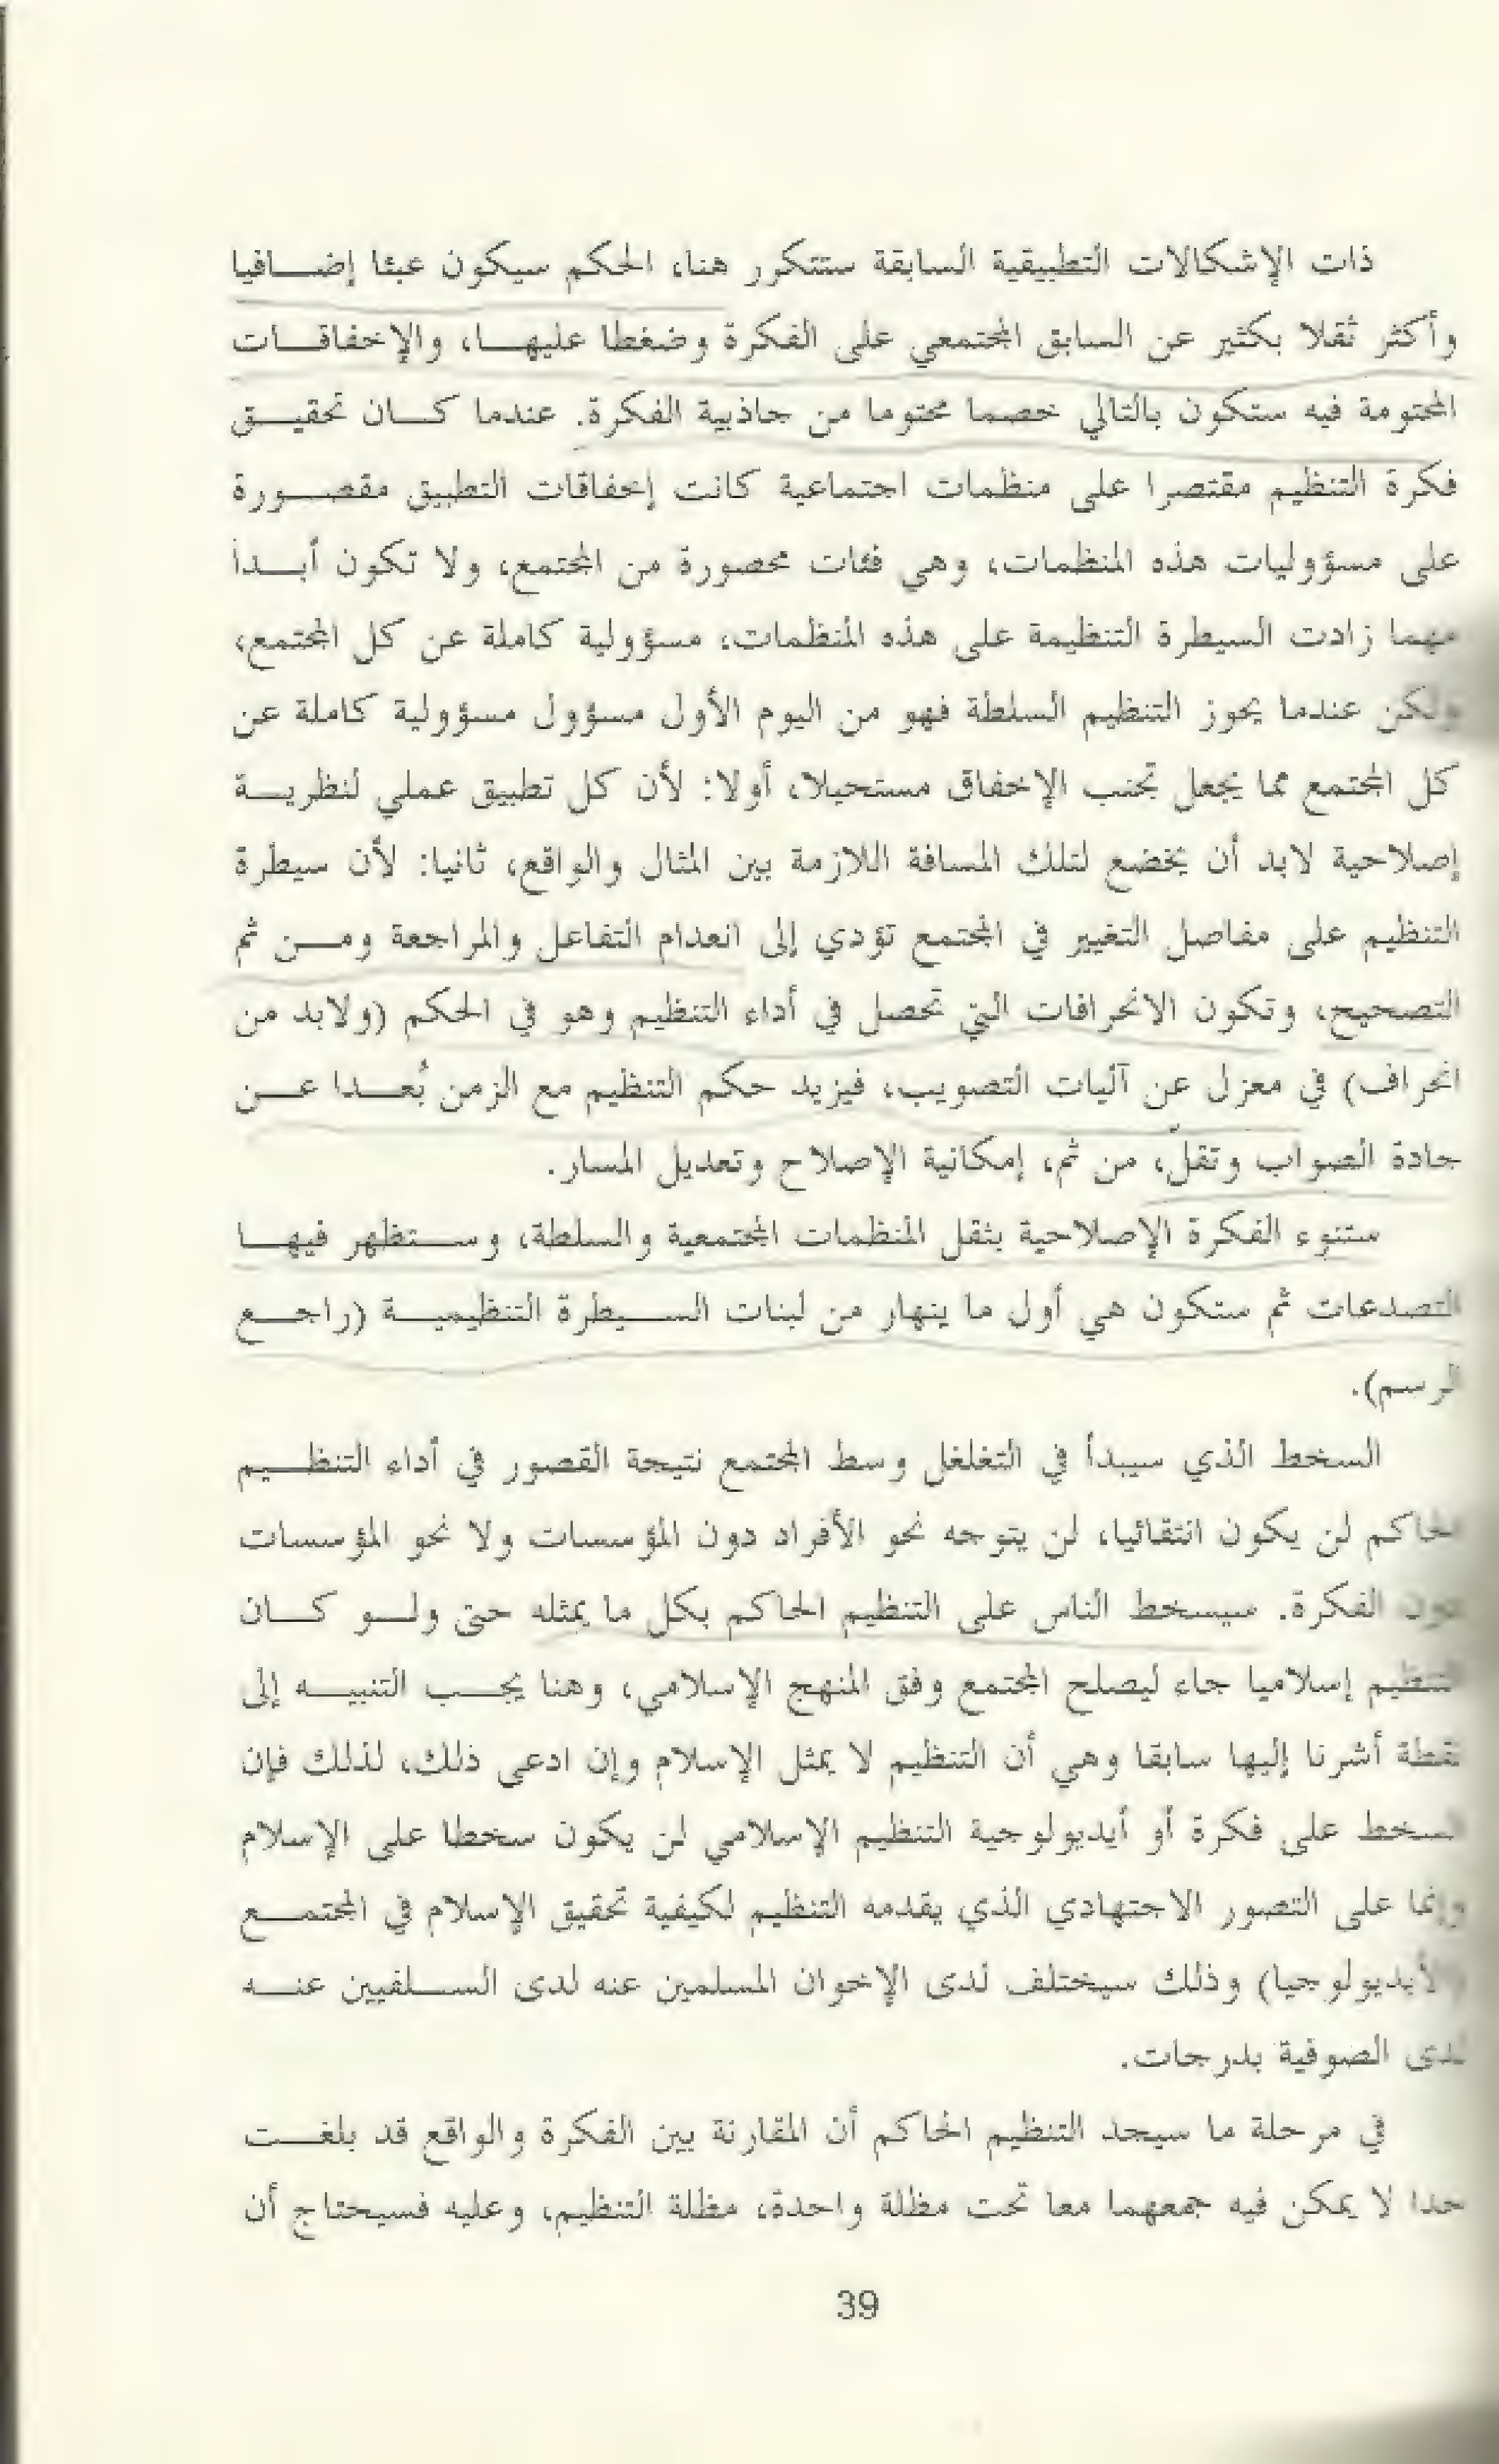 ذات الإشكالات التطبيقية السابقة ستتكرر هنا، الحكم سيكون عبئا إضافيا
وأكثر ثقلا بكثير عن السابق المجتمعي على الفكرة وضغطا عليها، والإخفاقات
المحتومة فيه ستكون بالتالي خصما محتوما من جاذبية الفكرة. عندما كان تحقيق
فكرة التنظيم مقتصرا على منظمات اجتماعية كانت إخفاقات التطبيق مقصورة
على مسؤوليات هذه المنظمات، وهي فئات محصورة من المجتمع، ولا تكون أبدا
مهما زادت السيطرة التنظيمة على هذه المنظمات، مسؤولية كاملة عن كل المجتمع،
ولكن عندما يحوز التنظيم السلطة فهو من اليوم الأول مسؤول مسؤولية كاملة عن
كل المجتمع مما يجعل تجنب الإخفاق مستحيلا، أولا: لأن كل تطبيق عملي لنظرية
إصلاحية لابد أن يخضع لتلك المسافة اللازمة بين المثال والواقع، ثانيا: لأن سيطرة
التنظيم على مفاصل التغيير في المجتمع تؤدي إلى انعدام التفاعل والمراجعة ومن ثم
التصحيح، وتكون الانحرافات التي تحصل في أداء التنظيم وهو في الحكم (ولابد من
انحراف) في معزل عن آليات التصويب، فيزيد حكم التنظيم مع الزمن بُعدا عن
جادة الصواب وتقلّ، من ثم، إمكانية الإصلاح وتعديل المسار.
ستنوء الفكرة الإصلاحية بثقل المنظمات المجتمعية والسلطة، وستظهر فيها
التصدعات ثم ستكون هي أول ما ينهار من لبنات السيطرة التنظيمية (راجع
الرسم).
السخط الذي سيبدأ في التغلغل وسط المجتمع نتيجة القصور في أداء التنظيم
الحاكم لن يكون انتقائيا، لن يتوجه نحو الأفراد دون المؤسسات ولا نحو المؤسسات
دون الفكرة. سيسخط الناس على التنظيم الحاكم بكل ما يمثله حتى ولو كان
التنظيم إسلاميا جاء ليصلح المجتمع وفق المنهج الإسلامي، وهنا يجب التنبيه إلى
نقطة أشرنا إليها سابقا وهي أن التنظيم لا يمثل الإسلام وإن ادعى ذلك، لذلك فإن
السخط على فكرة أو أيديولوجية التنظيم الإسلامي لن يكون سخطا على الإسلام
وإنما على التصور الاجتهادي الذي يقدمه التنظيم لكيفية تحقيق الإسلام في المجتمع
(الأيديولوجيا) وذلك سيختلف لدى الإخوان المسلمين عنه لدى السلفيين عنه
لدى الصوفية بدرجات.
في مرحلة ما سيجد التنظيم الحاكم أن المقارنة بين الفكرة والواقع قد بلغت
حدا لا يمكن فيه جمعهما معا تحت مظلة واحدة، مظلة التنظيم، وعليه فسيحتاج أن
39